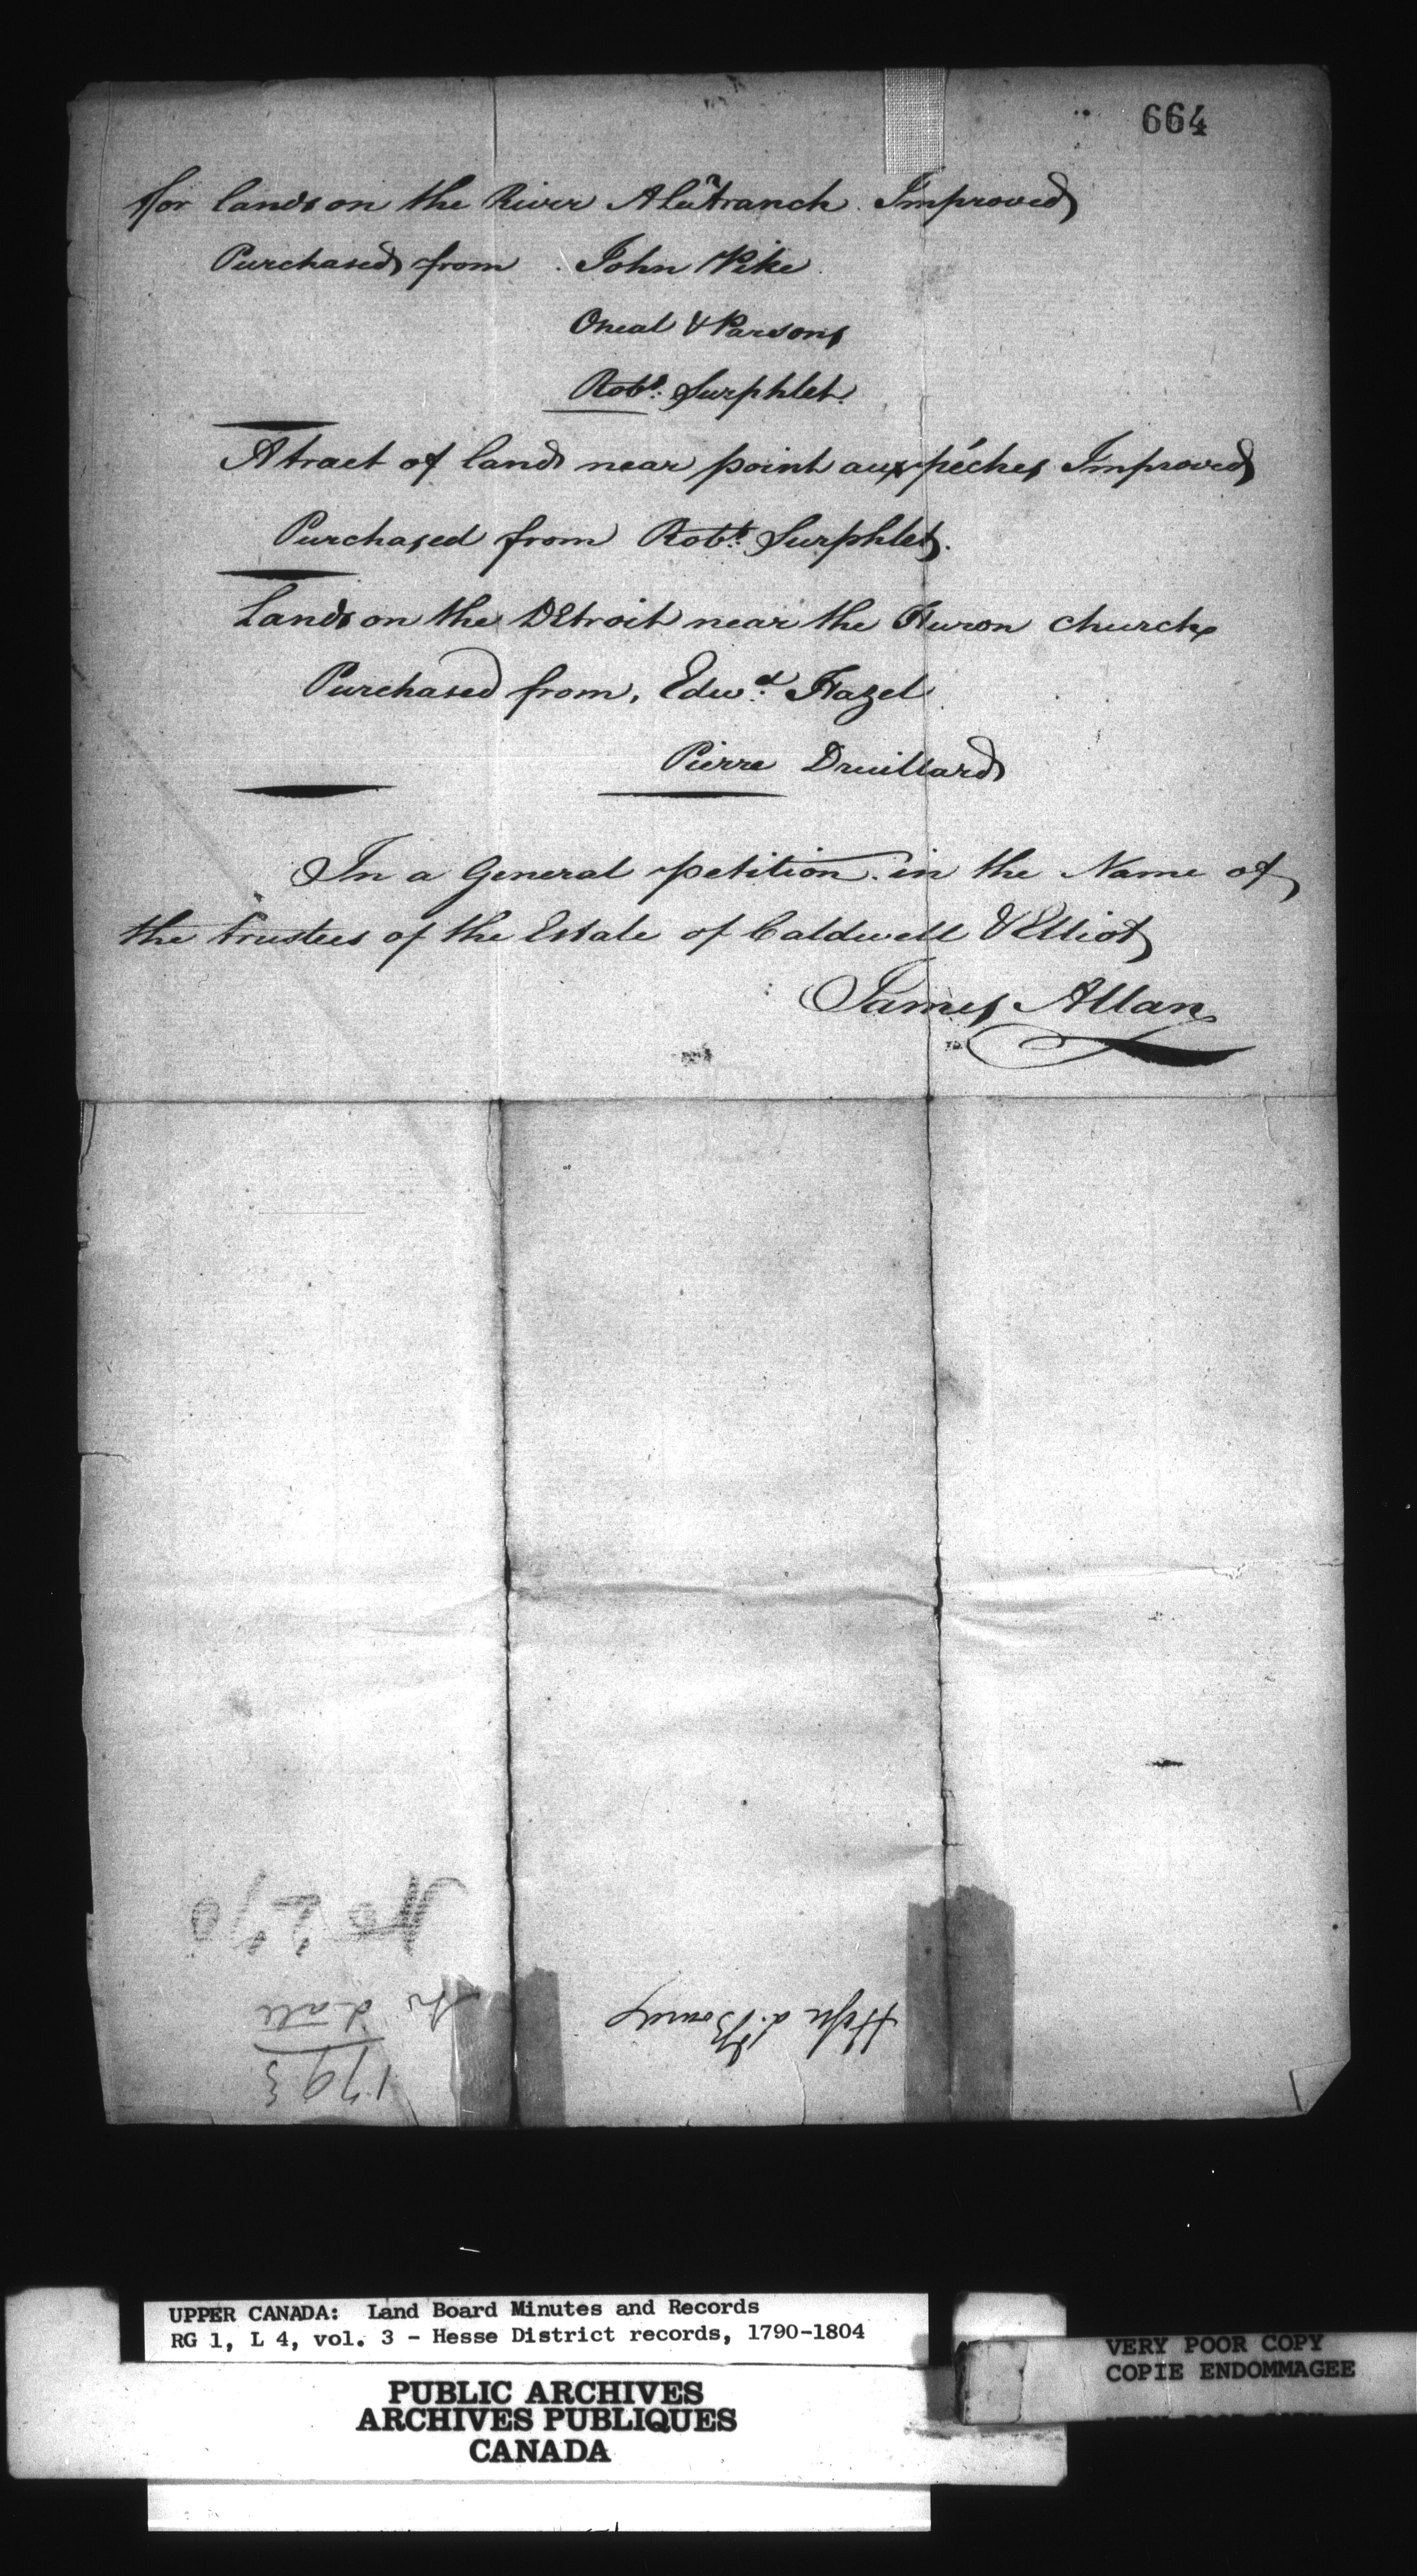 664
for lands on the River A la Tranch Improved
Purchased from John Pike
Oneal & Parsons
Robt. Surphlet.
A tract of land near point aux péches Improved
Purchased from Robt. Surphlet.
Lands on the DEtroit near the Huron church
Purchased from, Edwd. Hazel
Pierre Druillard
In a General petition in the Name of
the trustees of the Estate of Caldwell & Elliot
James Allan
No 270
no date
1793
UPPER CANADA: Land Board Minutes and Records
RG 1, L 4, vol. 3 - Hesse District records, 1790-1804
PUBLIC ARCHIVES
ARCHIVES PUBLIQUES
CANADA
VERY POOR COPY
COPIE ENDOMMAGEE